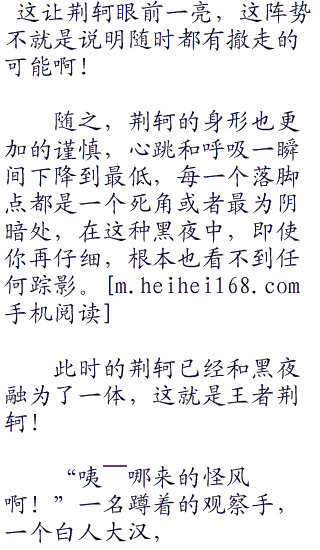 这让荆轲眼前一亮，这阵势
不就是说明随时都有撤走的
可能啊！
随之，荆轲的身形也更
加的谨慎，心跳和呼吸一瞬
间下降到最低，每一个落脚
点都是一个死角或者最为阴
暗处，在这种黑夜中，即使
你再仔细，根本也看不到任
何踪影。[m.heihei168.com
手机阅读]
此时的荆轲已经和黑夜
融为了一体，这就是王者荆
轲！
“咦￣哪来的怪风
啊！”一名蹲着的观察手，
一个白人大汉，